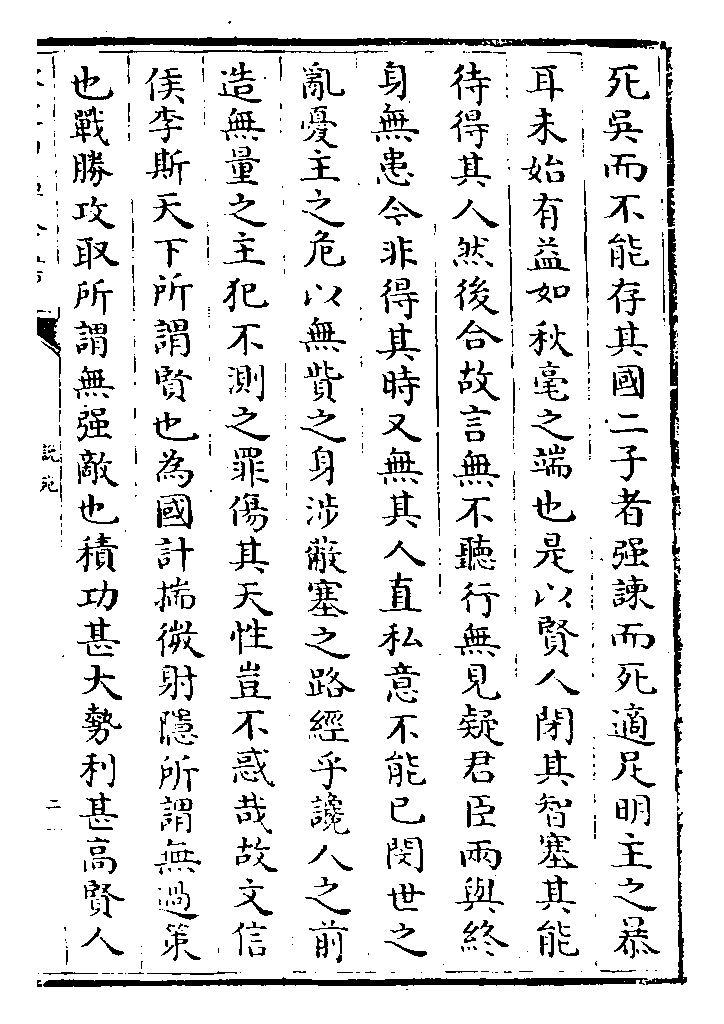 死吳而不能存其國二子者强諫而死適足明主之暴
耳未始有益如秋毫之端也是以賢人閉其智塞其能
待得其人然後合故言無不聽行無見疑君臣兩與終
身無患今非得其時又無其人直私意不能已閔世之
亂憂主之危以無貲之身涉蔽塞之路經乎讒人之前
造無量之主犯不測之罪傷其天性豈不惑哉故文信
侯李斯天下所謂賢也為國計揣微射隱所謂無過策
也戰勝攻取所謂無强敵也積功甚大勢利甚高賢人
説苑
二